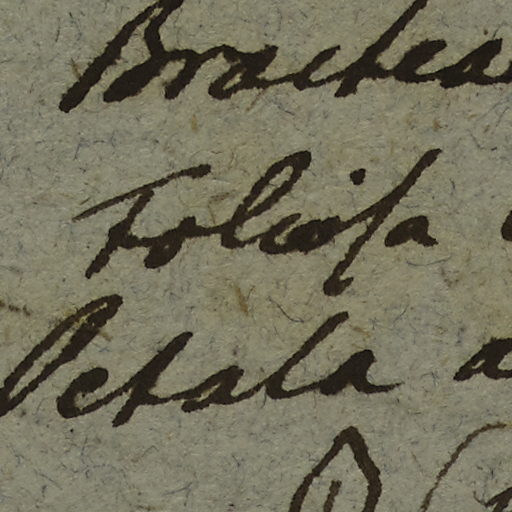 Bractea
Folioſa
Petala a